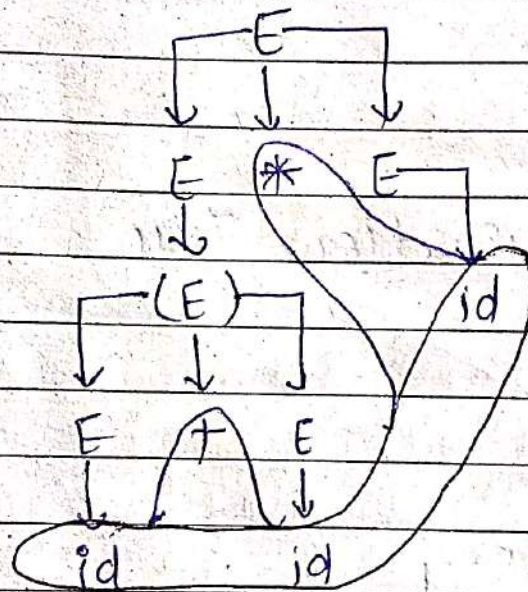 E
E * E
(E) id
E + E
id id